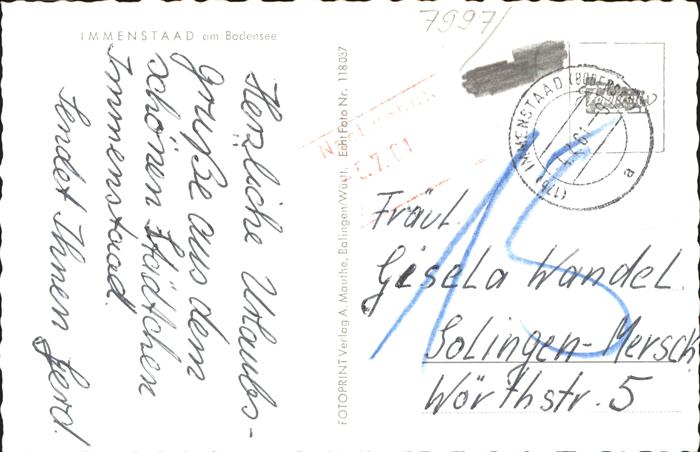 IMMENSTAAD am Bodensee
Herzliche Urlaubs-
grüße aus dem
schönen Städtchen
Immenstaad.
Sendet Ihnen Gerd.
FOTOPRINT Verlag A. Mauthe, Balingen/Württ. Echt Foto Nr. 118037
7997/
(17b) IMMENSTAAD (BODENSEE)
e
15
Fräul.
Gisela Wandel.
Solingen-Mersch
Wörthstr. 5